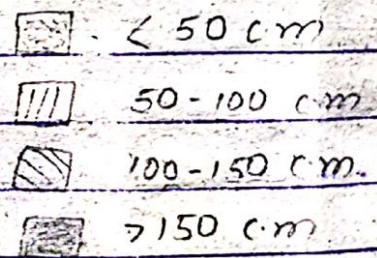 < 50 cm
50-100 cm
100-150 cm.
>150 c.m